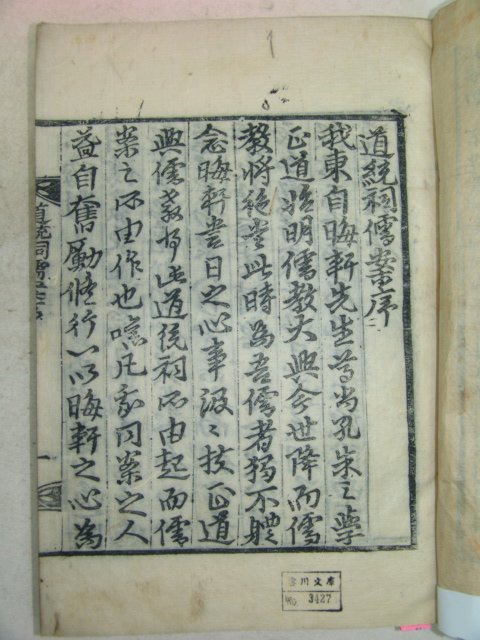 道統祠儒案序
我東自晦軒先生尊尚孔朱之學
正道始明儒教大興今世降而儒
教將絶當此時為吾儒者獨不軆
念晦軒當日之心事汲々扶正道
興儒教乎此道統祠所由起而儒
案之所由作也嗟凡我同案之人
益自奮勵修行以晦軒之心為
道統祠儒案序
一
雲川文庫
No. 3427